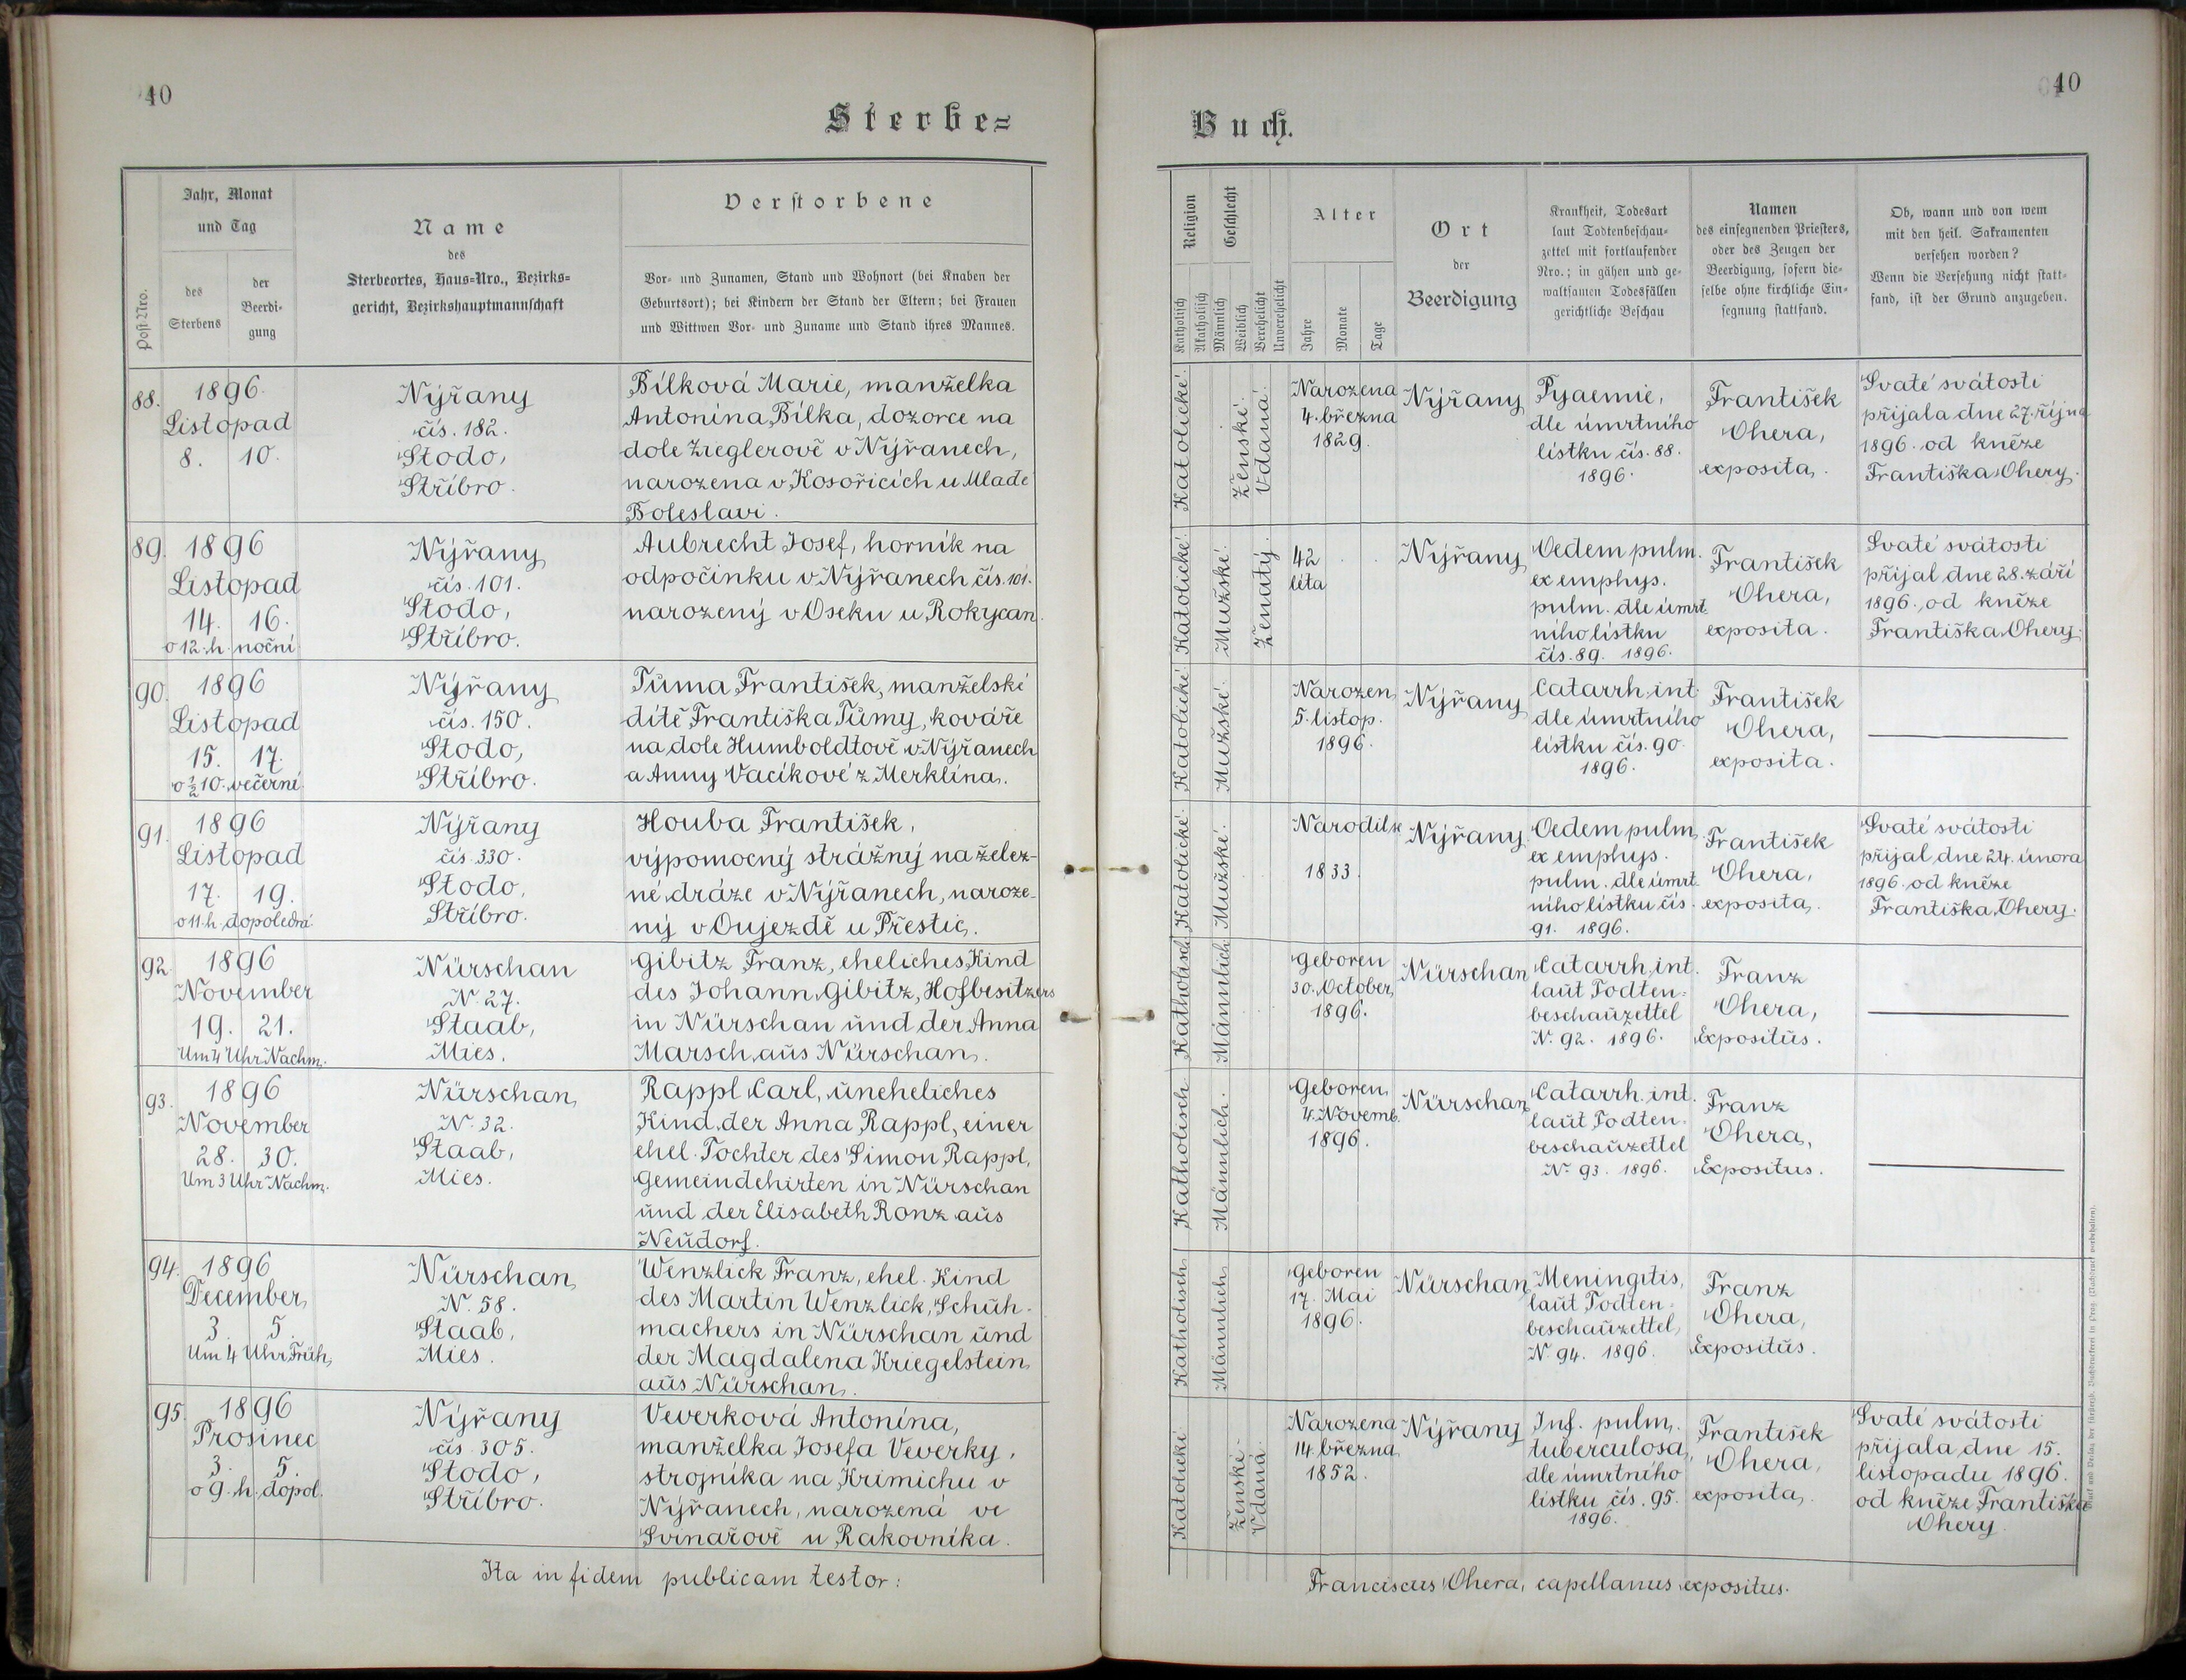 40
Sterbe=
Post-Nro.
Jahr, Monat
und Tag
des
Sterbens
der
Beerdi-
gung
Name
des
Sterbeortes, Haus=Nro., Bezirks=
gericht, Bezirkshauptmannschaft
Verstorbene
Vor- und Zunamen, Stand und Wohnort (bei Knaben der
Geburtsort); bei Kindern der Stand der Eltern; bei Frauen
und Wittwen Vor- und Zuname und Stand ihres Mannes.
88.
1896.
Listopad
8. 10.
Nýřany
čís. 182.
Stodo,
Stříbro.
Bílková Marie, manželka
Antonína Bílka, dozorce na
dole Zieglerově v Nýřanech,
narozena v Kosořicích u Mladé
Boleslavi.
89.
1896
Listopad
14. 16.
o 12. h. noční
Nýřany
čís. 101.
Stodo,
Stříbro.
Aubrecht Josef, horník na
odpočinku v Nýřanech čís. 101.
narozený v Oseku u Rokycan.
90.
1896
Listopad
15. 17.
o ½10. večerní
Nýřany
čís. 150.
Stodo,
Stříbro.
Tůma František, manželské
dítě Františka Tůmy, kováře
na dole Humboldtově v Nýřanech
a Anny Vacíkové z Merklína.
91.
1896
Listopad
17. 19.
o 11. h. dopolední
Nýřany
čís. 330.
Stodo,
Stříbro.
Houba František,
výpomocný strážný na želez-
né dráze v Nýřanech, naroze-
ný v Oujezdě u Přeštic.
92.
1896
November
19. 21.
Um 4 Uhr Nachm.
Nürschan
N. 27.
Staab,
Mies.
Gibitz Franz, eheliches Kind
des Johann Gibitz, Hofbesitzers
in Nürschan und der Anna
Marsch aus Nürschan.
93.
1896
November
28. 30.
Um 3 Uhr Nachm.
Nürschan
N. 32.
Staab,
Mies.
Rappl Carl, uneheliches
Kind der Anna Rappl, einer
ehel. Tochter des Simon Rappl,
Gemeindehirten in Nürschan
und der Elisabeth Ronz aus
Neudorf.
94.
1896
December
3. 5.
Um 4 Uhr Früh
Nürschan
N. 58.
Staab,
Mies.
Wenzlick Franz, ehel. Kind
des Martin Wenzlick, Schuh-
machers in Nürschan und
der Magdalena Kriegelstein
aus Nürschan.
95.
1896
Prosinec
3. 5.
o 9. h. dopol.
Nýřany
čís 305.
Stodo,
Stříbro.
Veverková Antonína,
manželka Josefa Veverky,
strojníka na Krimichu v
Nýřanech, narozená ve
Svinařově u Rakovníka.
Ita in fidem publicam testor:
40
Buch.
Religion
Katholisch
Akatholisch
Geschlecht
Männlich
Weiblich
Verehelicht
Unverehelicht
Alter
Jahre
Monate
Tage
Ort
der
Beerdigung
Krankheit, Todesart
laut Todtenbeschau=
zettel mit fortlaufender
Nro.; in gähen und ge=
waltsamen Todesfällen
gerichtliche Beschau
Namen
des einsegnenden Priesters,
oder des Zeugen der
Beerdigung, sofern die=
selbe ohne kirchliche Ein=
segnung stattfand.
Ob, wann und von wem
mit den heil. Sakramenten
versehen worden?
Wenn die Versehung nicht statt=
fand, ist der Grund anzugeben.
Katolické.
Ženské.
Vdaná.
Narozena
4. března
1829.
Nýřany
Pyaemie,
dle úmrtního
lístku čís. 88.
1896.
František
Ohera,
exposita.
Svaté svátosti
přijala dne 27. října
1896. od kněze
Františka Ohery.
Katolické.
Mužské.
Ženatý.
42
léta
Nýřany
Oedem pulm.
ex emphys.
pulm. dle úmrt.
ního lístku
čís. 89. 1896.
František
Ohera,
exposita.
Svaté svátosti
přijal dne 28. září
1896. od kněze
Františka Ohery.
Katolické.
Mužské.
Narozen
5. listop.
1896.
Nýřany
Catarrh. int.
dle úmrtního
lístku čís. 90.
1896.
František
Ohera,
exposita.
Katolické.
Mužské.
Narodil se
1833.
Nýřany
Oedem pulm.
ex emphys.
pulm. dle úmrt.
ního lístku čís.
91. 1896.
František
Ohera,
exposita.
Svaté svátosti
přijal dne 24. února
1896. od kněze
Františka Ohery.
Katholisch.
Männlich.
Geboren
30. October
1896.
Nürschan
Catarrh. int.
laut Todten-
beschauzettel
N. 92. 1896.
Franz
Ohera,
Expositus.
Katholisch.
Männlich.
Geboren
4. Novemb.
1896.
Nürschan
Catarrh. int.
laut Todten-
beschauzettel
N. 93. 1896.
Franz
Ohera,
Expositus.
Katholisch.
Männlich.
Geboren
17. Mai
1896.
Nürschan
Meningitis,
laut Todten-
beschauzettel
N. 94. 1896.
Franz
Ohera,
Expositus.
Katolické.
Ženské.
Vdaná.
Narozena
14. března
1852.
Nýřany
Inf. pulm.
tuberculosa,
dle úmrtního
lístku čís. 95.
1896.
František
Ohera,
exposita.
Svaté svátosti
přijala dne 15.
listopadu 1896.
od kněze Františka
Ohery.
Franciscus Ohera, capellanus expositus.